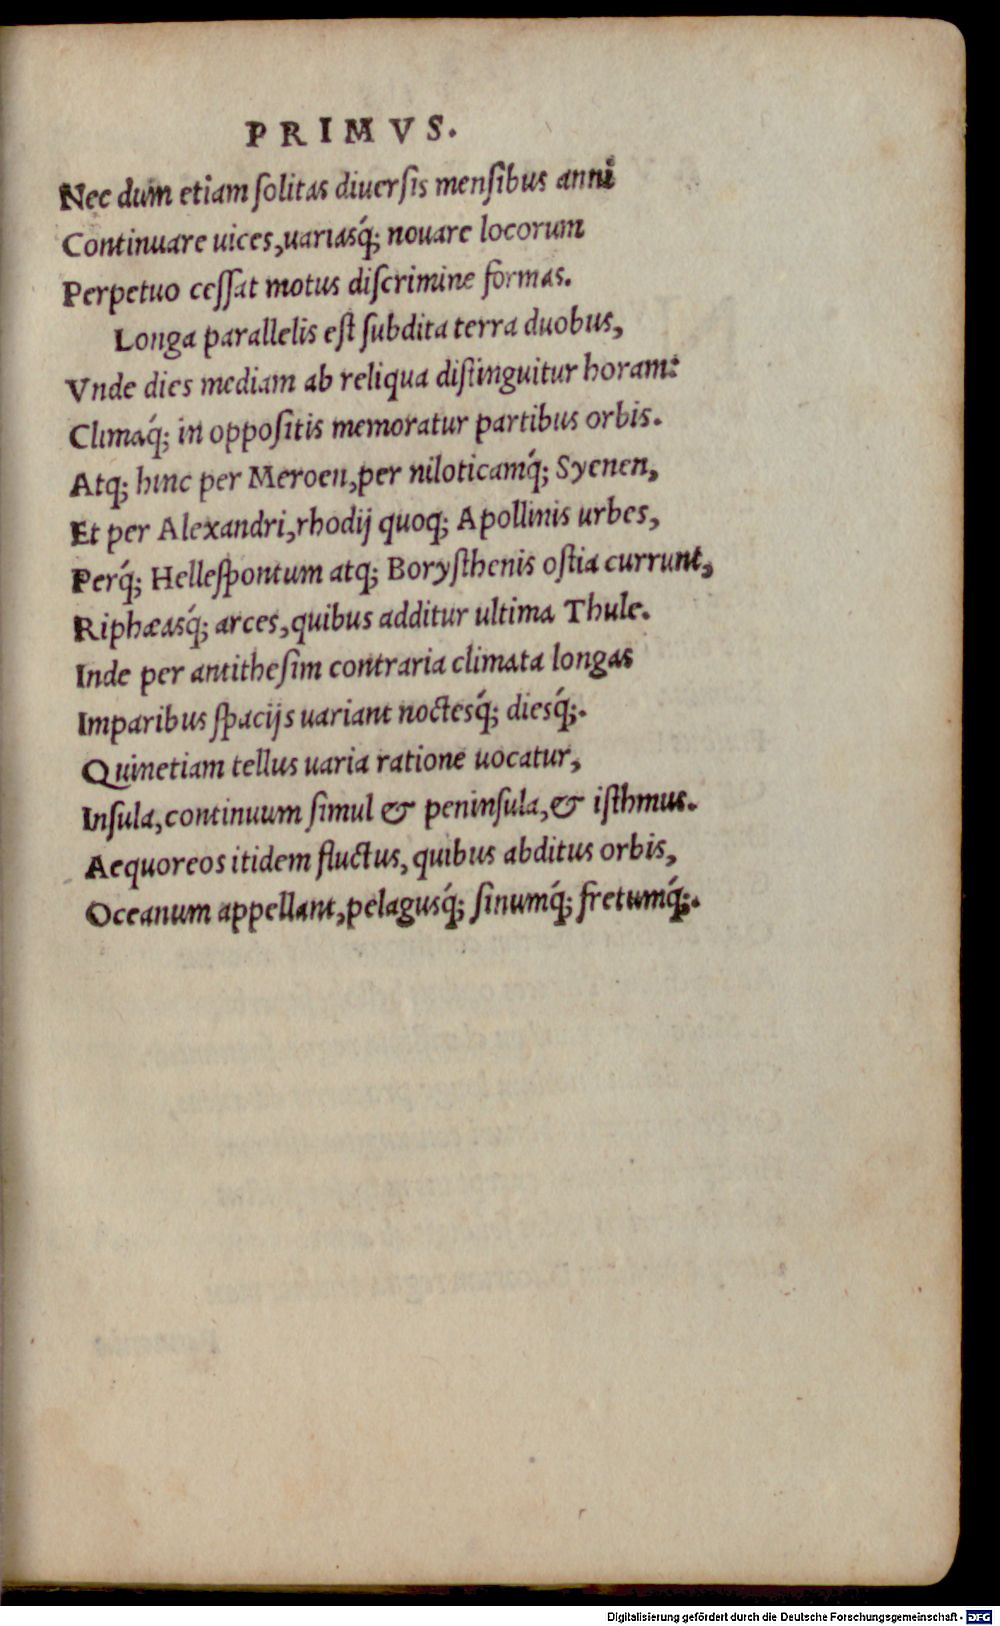 PRIMVS.
Nec dum etiam ſolitas diuerſis menſibus anni
Continuare uices,uariasq́; nouare locorum
Perpetuo ceſſat motus diſcrimine formas.
Longa parallelis eſt ſubdita terra duobus,
Vnde dies mediam ab reliqua diſtinguitur horam:
Climaq́; in oppoſitis memoratur partibus orbis.
Atq; hinc per Meroen,per niloticamq́; Syenen,
Et per Alexandri,rhodij quoq; Apollinis urbes,
Perq́; Helleſpontum atq; Boryſthenis oſtia currunt,
Riphæasq́; arces,quibus additur ultima Thule.
Inde per antitheſim contraria climata longas
Imparibus ſpacijs uariant noctesq́; diesq́;.
Quinetiam tellus uaria ratione uocatur,
Inſula,continuum ſimul & peninſula,& iſthmus.
Aequoreos itidem fluctus,quibus abditus orbis,
Oceanum appellant,pelagusq́; ſinumq́; fretumq́;.
Digitalisierung gefördert durch die Deutsche Forschungsgemeinschaft - DFG